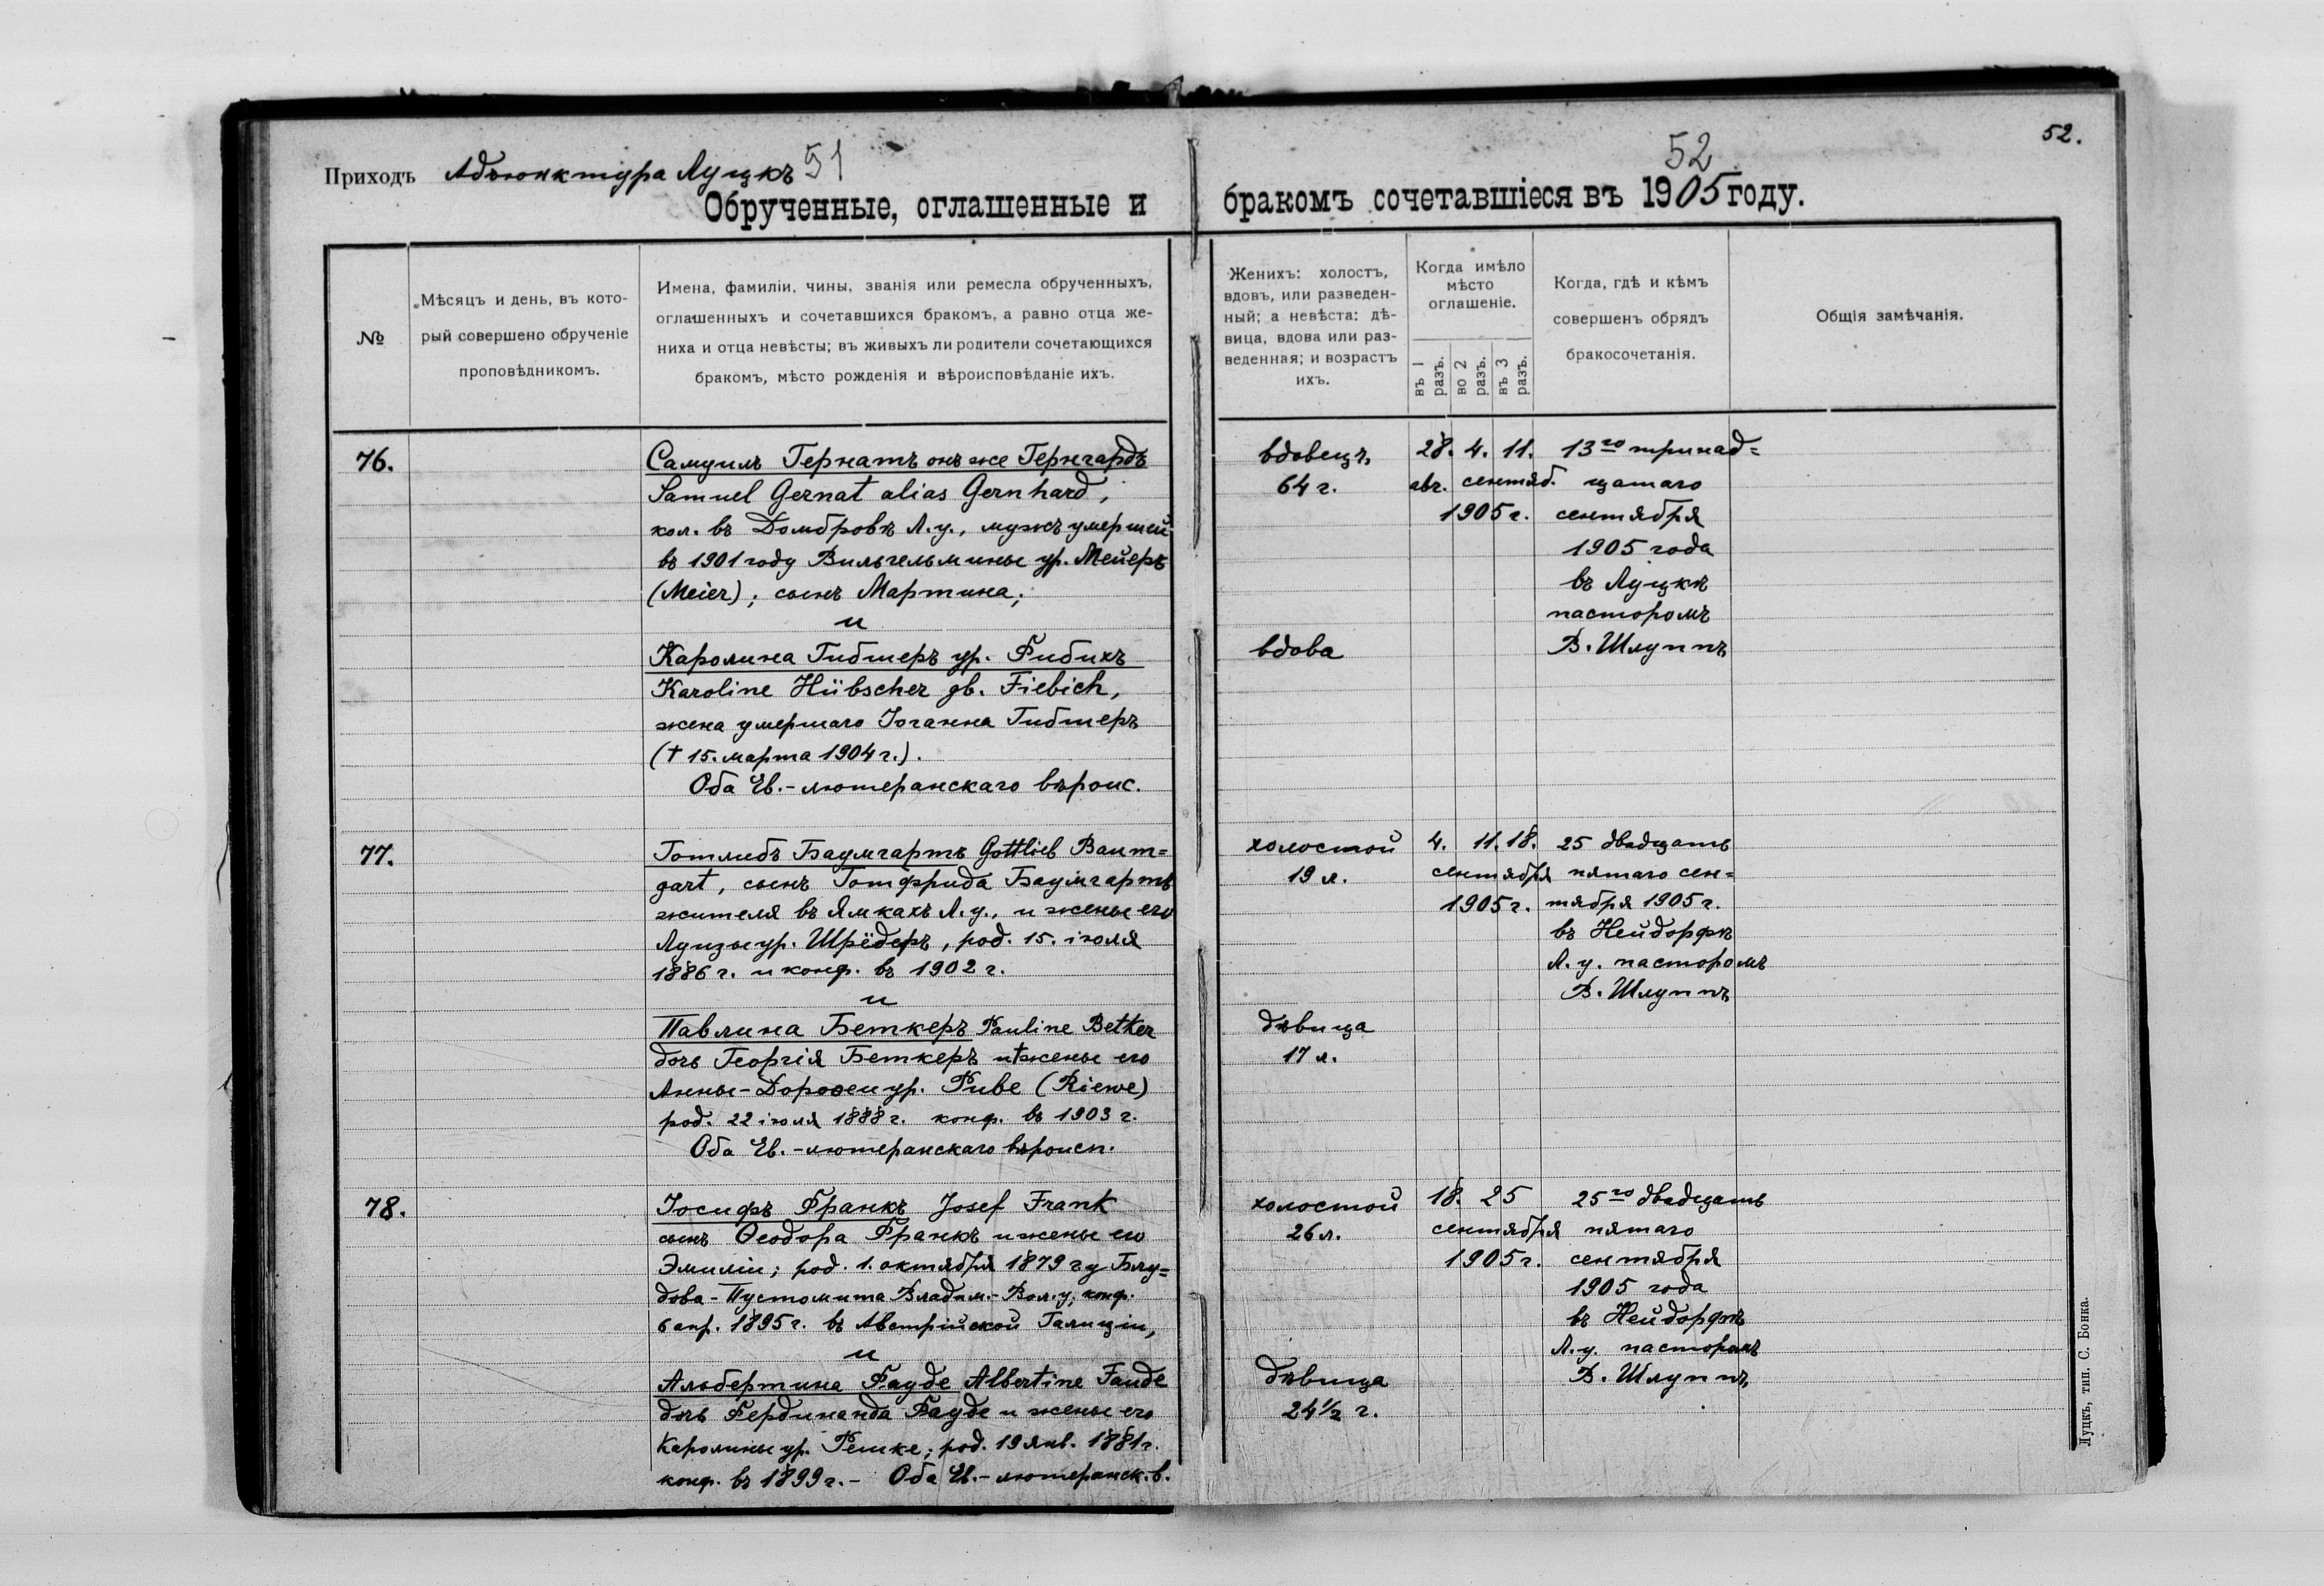 Приходъ Адъюнктура Луцкъ 51
Обрученные, оглашенные и
№
Мѣсяцъ и день, въ кото-
рый совершено обрученіе
проповѣдникомъ.
Имена, фамиліи, чины, званія или ремесла обрученныхъ,
оглашенныхъ и сочетавшихся бракомъ, а равно отца же-
ниха и отца невѣсты; въ живыхъ ли родители сочетающихся
бракомъ, мѣсто рожденія и вѣроисповѣданіе ихъ.
76.
Самуилъ Гернатъ онъ же Гернгардъ
Samuel Gernat alias Gernhard,
кол. въ Домбровѣ Л. у., мужъ умершей
въ 1901 году Вильгельмины ур. Мейеръ
(Meier); сынъ Мартина;
и
Каролина Гибшеръ ур. Фибихъ
Karoline Hübscher gb. Fiebich,
жена умершаго Іоганна Гибшеръ
(† 15. марта 1904 г.).
Оба Ев.-лютеранскаго вѣроис.
77.
Готлибъ Баумгартъ Gottlieb Baum=
gart, сынъ Готфрида Баумгартъ
жителя въ Ямкахъ Л. у., и жены его
Луизы ур. Шрёдеръ, род. 15. іюля
1886 г. и конф. въ 1902 г.
и
Павлина Беткеръ Pauline Betker
дочь Георгія Беткеръ и †жены его
Анны-Доровеи ур. Риве (Riewe)
род. 22 іюля 1888 г. конф. въ 1903 г.
Оба Ев.-лютеранскаго вѣроисп.
78.
Іосифъ Франкъ Josef Frank
сынъ Ѳеодора Франкъ и жены его
Эмиліи; род. 1. октября 1879 г у Блу=
дова-Пустомита Владим.-Вол. у, конф.
6 апр. 1895 г. въ Австрійской Галиціи,
и
Альбертина Фауде Albertine Faude
дочь Фердинанда Фауде и жены его
Каролины ур. Решке; род. 19 янв. 1881 г.
конф. въ 1899 г. - Оба Ев.-лютеранск. в.
52
52.
бракомъ сочетавшіеся въ 1905 году.
Женихъ: холостъ,
вдовъ, или разведен-
ный; а невѣста: дѣ-
вица, вдова или раз-
веденная; и возрастъ
ихъ.
Когда имѣло
мѣсто
оглашеніе.
въ 1 разъ.
во 2 разъ.
въ 3 разъ.
Когда, гдѣ и кѣмъ
совершенъ обрядъ
бракосочетанія.
Общія замѣчанія.
вдовецъ, 28. 4. 11. 13го тринад=
64 г. авг. сентяб. цатаго
1905 г. сентября
1905 года
въ Луцкѣ
пасторомъ
вдова В. Шлуппъ
холостой 4. 11. 18. 25 двадцать
19 л. сентября пятаго сен=
1905 г. тября 1905 г.
въ Нейдорфѣ
Л. у. пасторомъ
В. Шлуппъ
дѣвица
17 л.
холостой 18. 25 25го двадцать
26 л. сентября пятаго
1905 г. сентября
1905 года
въ Нейдорфѣ
Л. у. пасторомъ
дѣвица В. Шлуппъ
24 1/2 г.
Луцкъ, тип. С. Бонка.